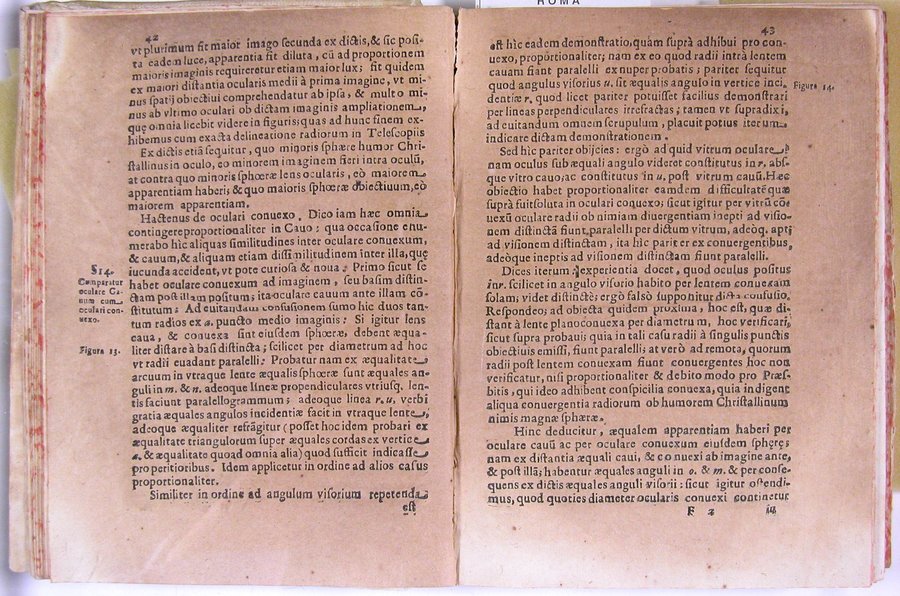 ROMA
42
vt plurimum fit maior imago secunda ex dictis, & sic posi-
ta eadem luce, apparentia fit diluta, cũ ad proportionem
maioris imaginis requireretur etiam maior lux; fit quidem
ex maiori distantia ocularis medij à prima imagine, vt mi-
nus spatij obiectiui comprehendatur ab ipsa, & multo mi-
nus ab vltimo oculari ob dictam imaginis ampliationem,
quę omnia licebit videre in figuris quas ad hunc finem ex-
hibemus cum exacta delineatione radiorum in Telescopijs
Ex dictis etiã sequitur, quo minoris sphæræ humor Chri-
stallinus in oculo, eo minorem imaginem fieri intra oculũ,
at contra quo minoris sphœræ lens ocularis, eò maiorem
apparentiam haberis & quo maioris sphœræ obiectiuum, eò
maiorem apparentiam.
Hactenus de oculari conuexo. Dico iam hæc omnia
contingere proportionaliter in Cauo; qua occasione enu-
merabo hìc aliquas similitudines inter oculare conuexum,
& cauum, & aliquam etiam dissimilitudinem inter illa, quę
iucunda accident, vt pote curiosa & noua. Primo sicut se
habet oculare conuexum ad imaginem, seu basim distin-
ctam post illam positum; ita oculare cauum ante illam cõ-
stitutum: Ad euitandam confusionem sumo hic duos tan-
tum radios ex a. puncto medio imaginis: Si igitur lens
caua, & conuexa sint eiusdem sphœræ, debent æqua-
liter distare à basi distincta; scilicet per diametrum ad hoc
vt radij euadant paralleli: Probatur nam ex æqualitate
arcuum in vtraque lente æqualis sphœræ sunt æquales an-
guli in m. & n. adeoque lineæ propendiculares vtriusq. len-
tis faciunt paralellogrammum; adeoque linea r. u. verbi
gratia æquales angulos incidentiæ facit in vtraque lente,
adeoque æqualiter refrãgitur (posset hoc idem probari ex
æqualitate triangulorum super æquales cordas ex vertice
a. & æqualitate quoad omnia alia) quod sufficit indicasse
pro peritioribus. Idem applicetur in ordine ad alios casus
proportionaliter.
Similiter in ordine ad angulum visorium repetenda
est
§ 14.
Comparatur
oculare Ca-
uum cum
oculari con-
uexo.
Figura 13.
43
est hìc eadem demonstratio, quam suprà adhibui pro con-
uexo, proportionaliter; nam ex eo quod radij intrà lentem
cauam fiant paralleli ex nuper probatis; pariter sequitur
quod angulus visorius u. sit æqualis angulo in vertice inci-
dentiæ r. quod licet pariter potuisset facilius demonstrari
per lineas perpendiculares irrefractas; tamen vt supra dixi,
ad euitandum omnem scrupulum, placuit potius iterum
indicare dictam demonstrationem.
Sed hìc pariter obijcies: ergò ad quid vitrum oculare,
nam oculus sub æquali angulo videret constitutus in r. abs-
que vitro cauo, ac constitutus in u. post vitrum cauũ. Hæc
obiectio habet proportionaliter eamdem difficultatẽ quæ
suprà fuit soluta in oculari cõuexo; sicut igitur per vitrũ cõ-
uexũ oculare radij ob nimiam diuergentiam inepti ad visio-
nem distinctã fiunt paralleli per dictum vitrum, adeòq. apti
ad visionem distinctam, ita hìc pariter ex conuergentibus,
adeòque ineptis ad visionem distinctam fiunt paralleli.
Dices iterum; experientia docet, quod oculus positus
in r. scilicet in angulo visorio habito per lentem conuexam
solam; videt distinctè; ergò falsò supponitur dicta confusio.
Respondeo; ad obiecta quidem proxima, hoc est, quæ di-
stant à lente planoconuexa per diametrum, hoc verificari,
sicut supra probauis quia in tali casu radij à singulis punctis
obiectiuis emissi, fiunt paralleli; at verò ad remota, quorum
radij post lentem conuexam fiunt conuergentes hoc non
verificatur, nisi proportionaliter & debito modo pro Præs-
bitis, qui ideo adhibent conspicilia conuexa, quia indigent
aliqua conuergentia radiorum ob humorem Christallinum
nimis magnæ sphæræ.
Hinc deducitur, æqualem apparentiam haberi per
oculare cauũ ac per oculare conuexum eiusdem sphęrę;
nam ex distantia æquali caui, & conuexi ab imagine ante,
& post illã; habentur æquales anguli in o. & m. & per conse-
quens ex dictis æquales anguli visorij: sicut igitur ostendi-
mus, quod quoties diameter ocularis conuexi continetur
F 2
in
Figura 14.